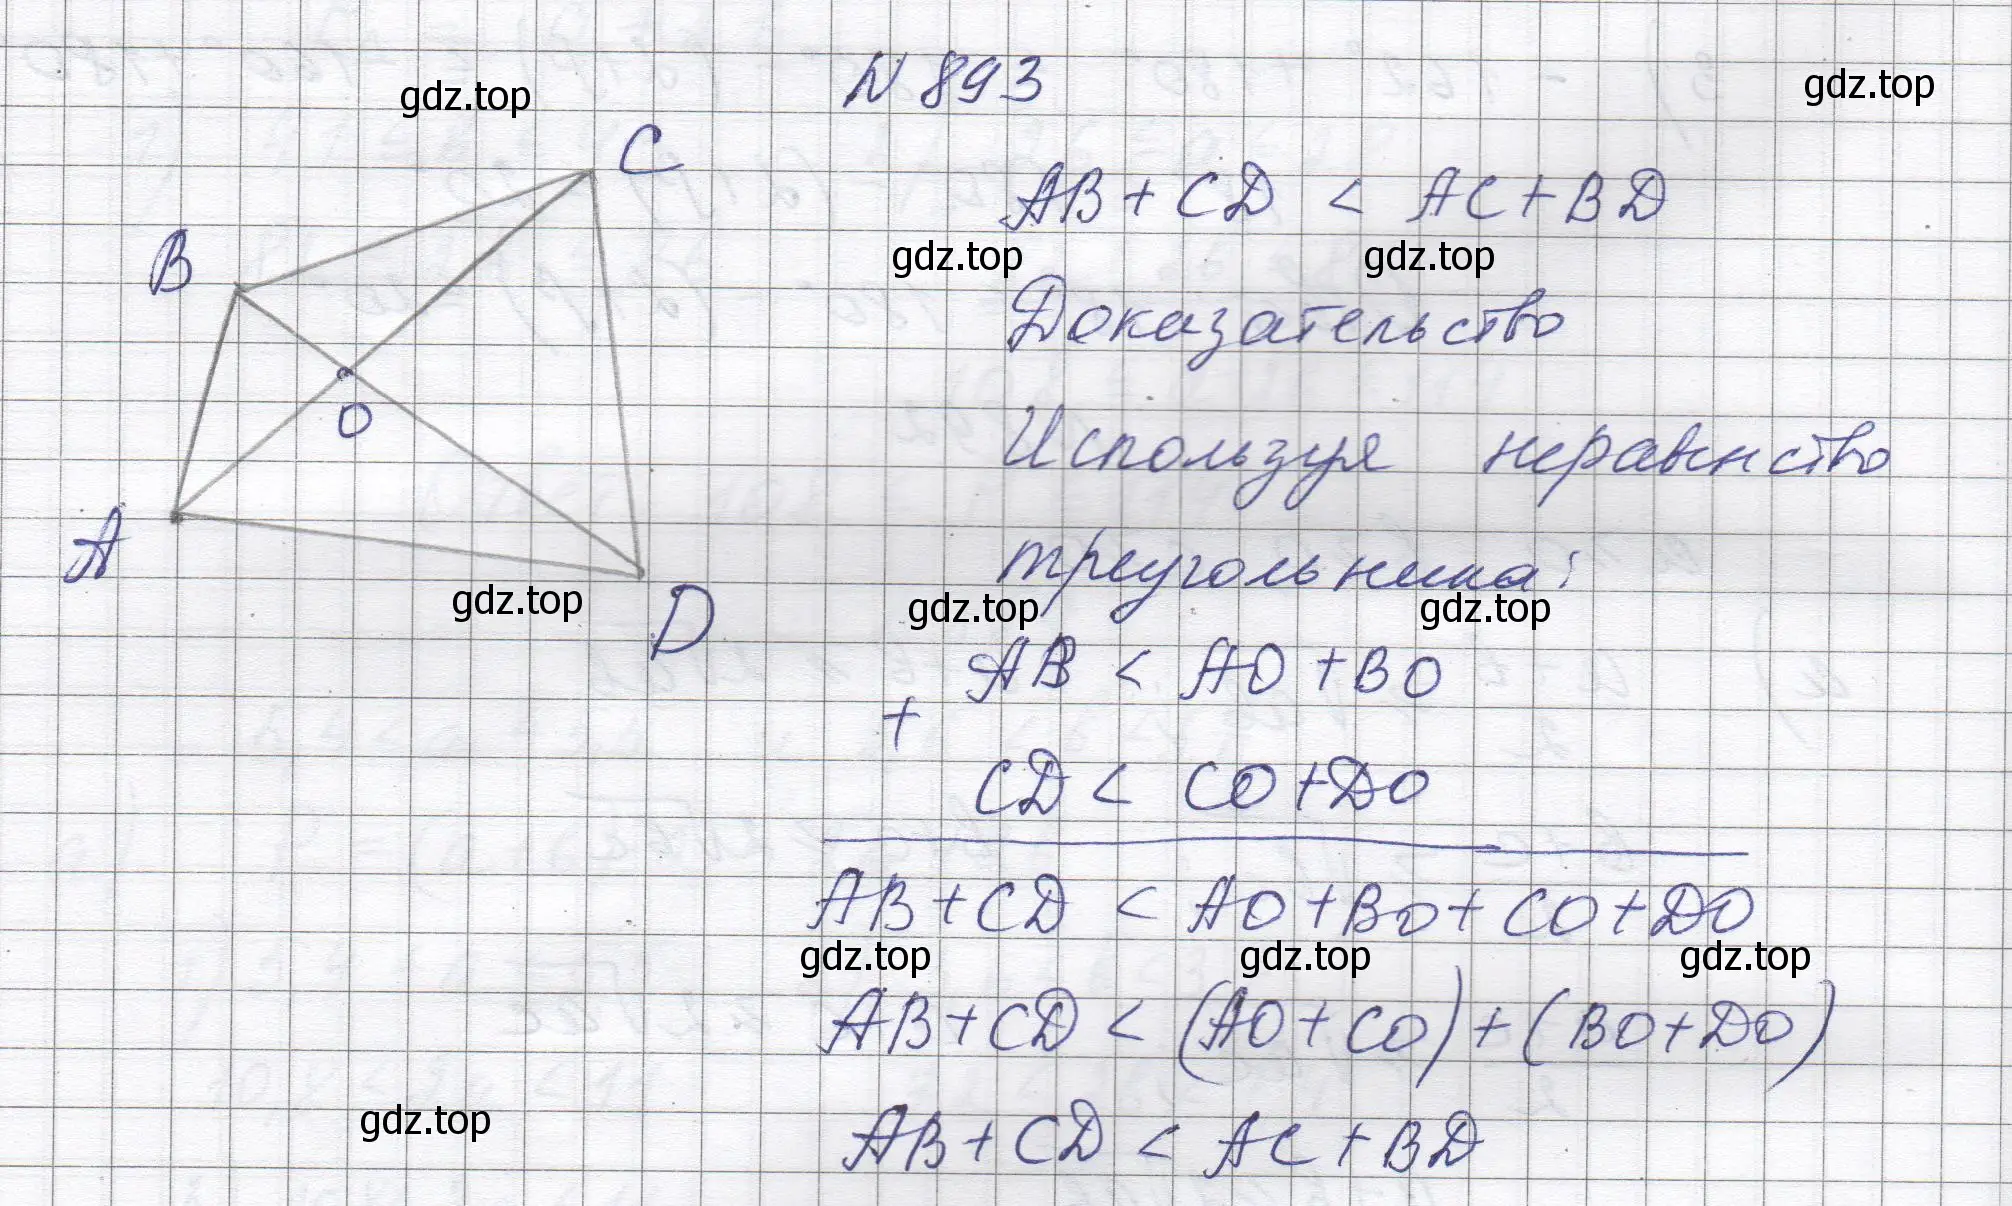 N 893
gdz.top
gdz.top
C
B
O
A
D
AB + CD < AC + BD
gdz.top
gdz.top
Доказательство
Используя неравенство
треугольника:
gdz.top
gdz.top
gdz.top
AB < AO + BO
+
CD < CO + DO
AB + CD < AO + BO + CO + DO
gdz.top
gdz.top
gdz.top
AB + CD < (AO + CO) + (BO + DO)
gdz.top
AB + CD < AC + BD